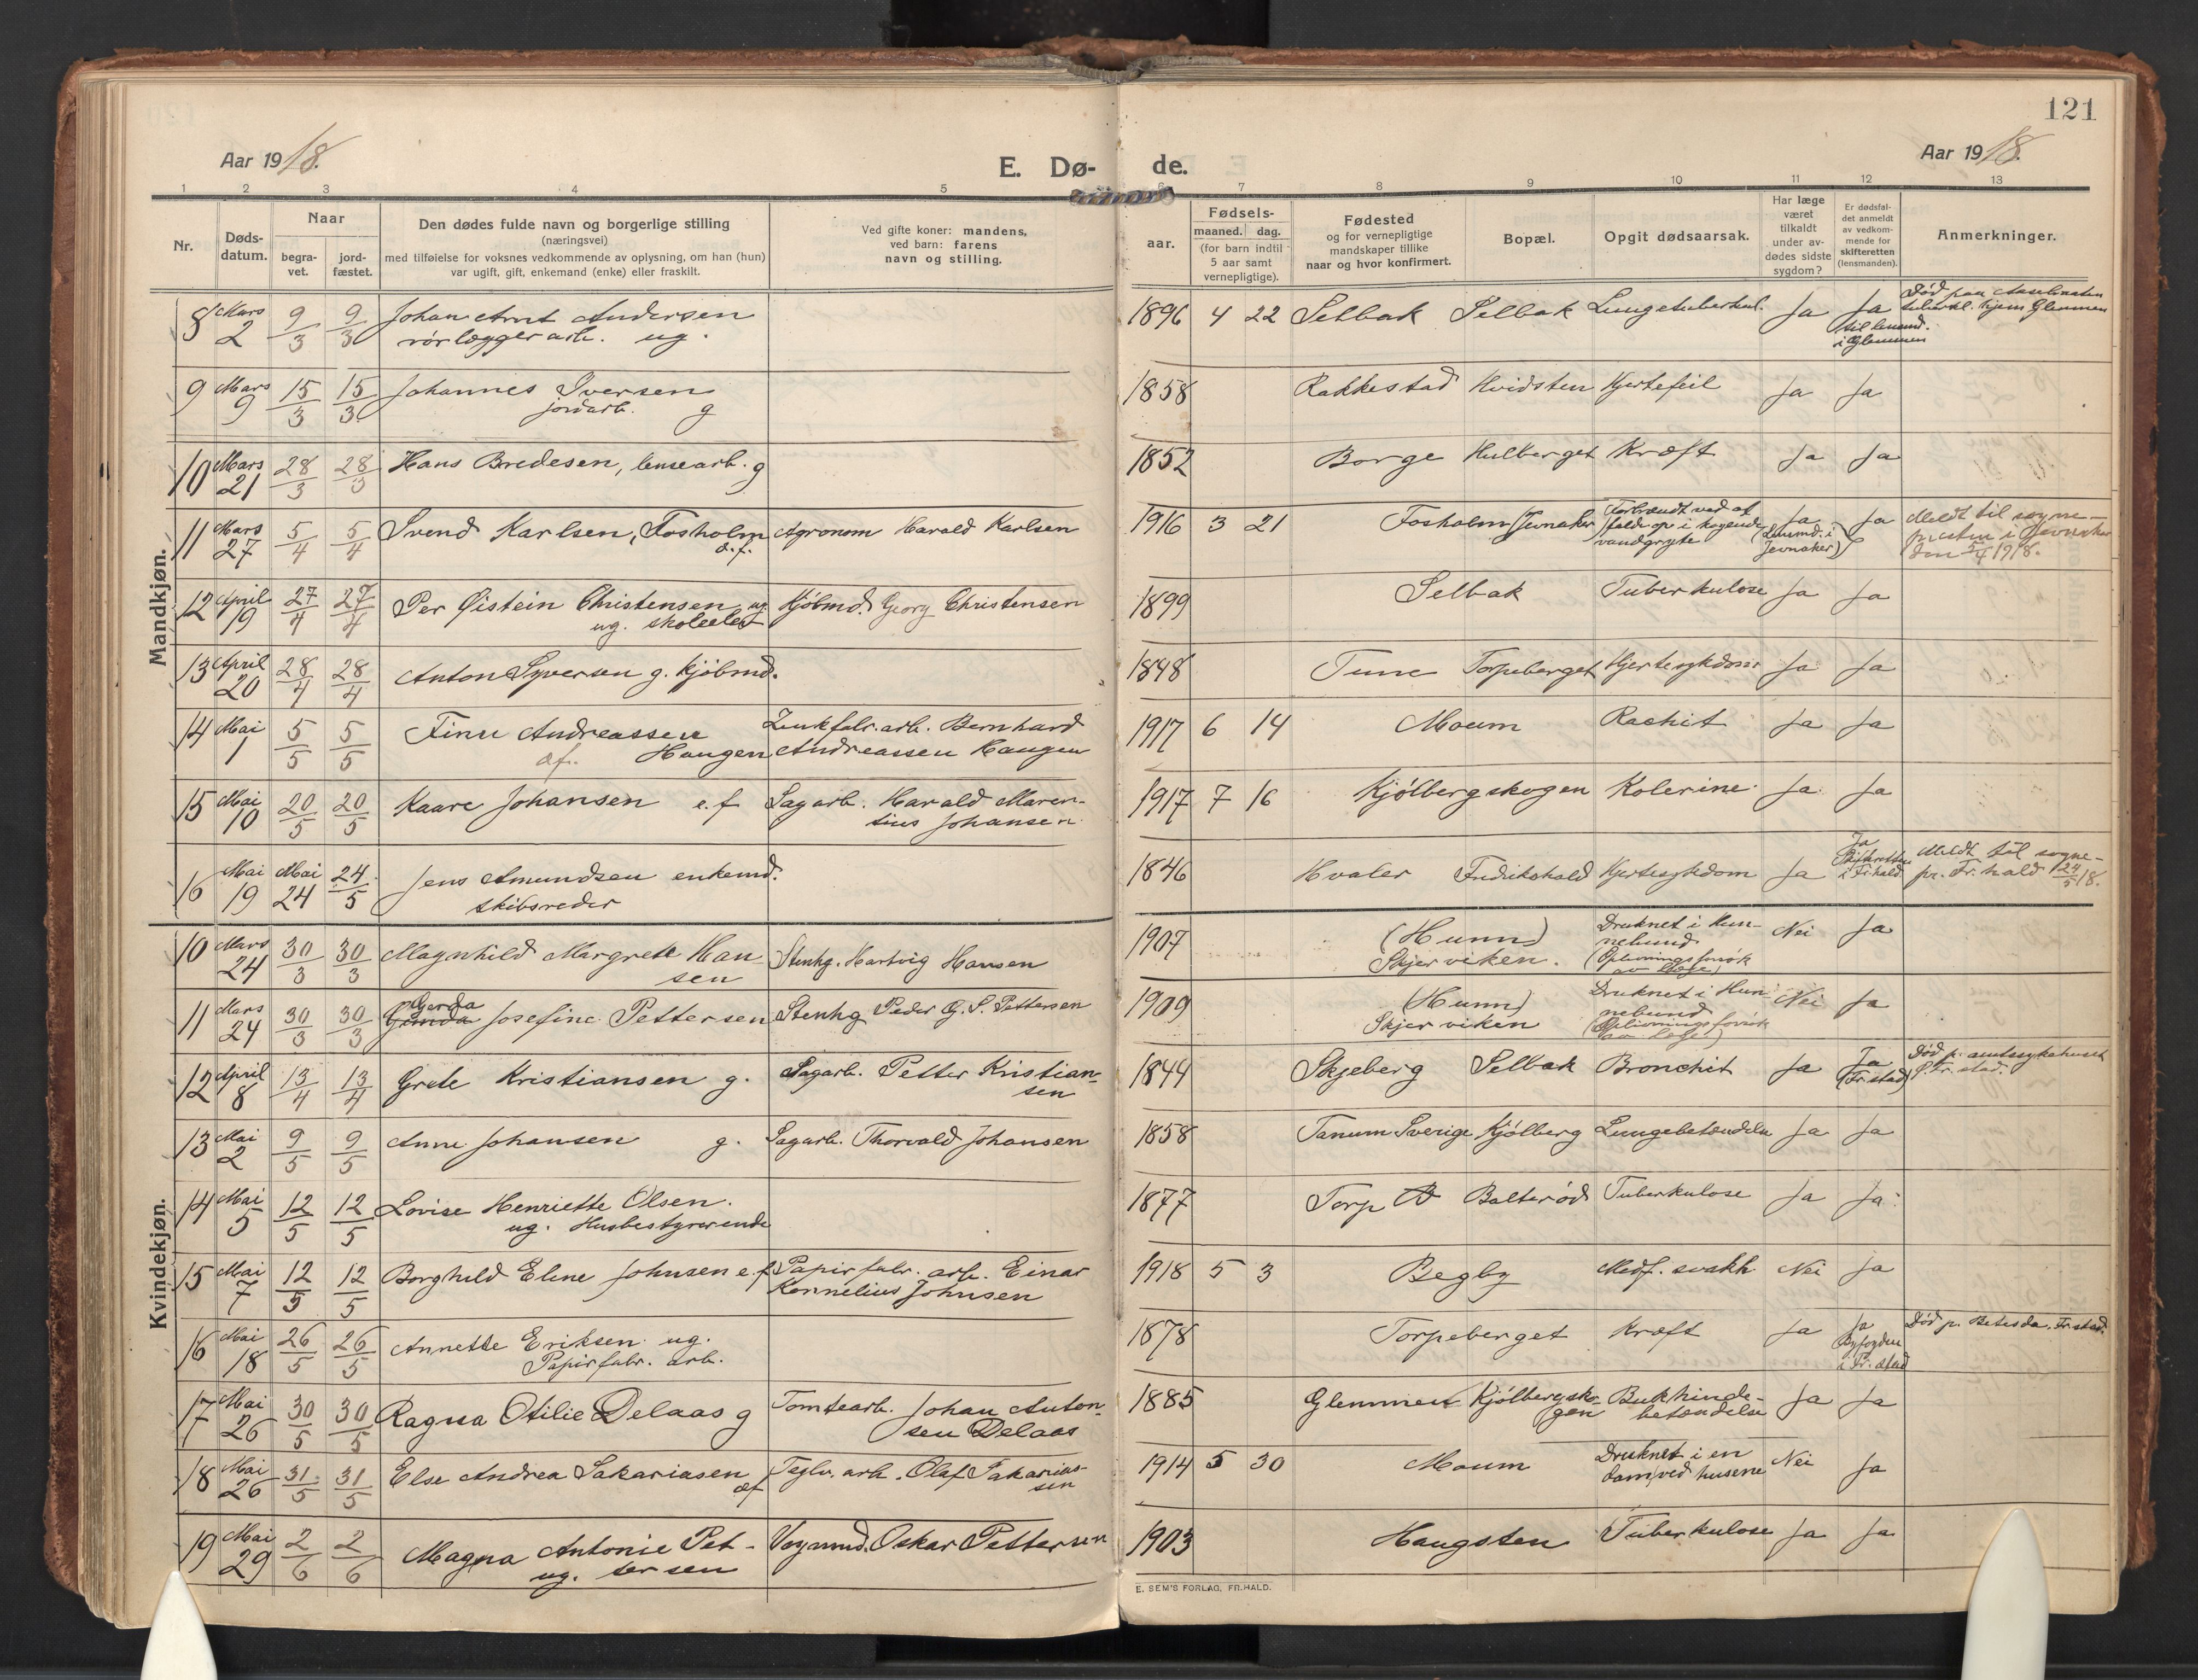 121
Aar 1918.
E. Dø-
de.
Aar 1918.
1 2 3 4 5 7 8 9 10 11 12 13
Nr.
Døds-
datum.
Naar
begra-
vet.
jord-
fæstet.
Den dødes fulde navn og borgerlige stilling
(næringsvei)
med tilføielse for voksnes vedkommende av oplysning, om han (hun)
var ugift, gift, enkemand (enke) eller fraskilt.
Ved gifte koner: mandens,
ved barn: farens
navn og stilling.
aar.
Fødsels-
maaned. dag.
(for barn indtil
5 aar samt
vernepligtige).
Fødested
og for vernepligtige
mandskaper tillike
naar og hvor konfirmert.
Bopæl.
Opgit dødsaarsak.
Har læge
været
tilkaldt
under av-
dødes sidste
sygdom?
Er dødsfal-
det anmeldt
av vedkom-
mende for
skifteretten
(lensmanden).
Anmerkninger.
Mandkjøn.
8 Mars 2 9/3 9/3 Johan Arnt Andersen
rörlægger arb. ug.
1896 4 22 Selbak Selbak Lungetuberkul. Ja Ja
til lensmd.
i Glemmen
Død paa
tuberkl. hjem Glemmen
9 Mars 9 15/3 15/3 Johannes Iversen
jordarb. g
1858 Rakkestad Hvidsten Hjertefeil Ja Ja
10 Mars 21 28/3 28/3 Hans Bredesen, lensearb. g
1852 Borge Hulberget Kræft Ja Ja
11 Mars 27 5/4 5/4 Svend Karlsen, Fosholm Agronom Harald Karlsen
1916 3 21 Fosholm (Jevnaker) Forbrændt ved at
falde op i kogende
vandgryte
Ja (Lensmd. i
Jevnaker) Ja
Meldt til sogne-
presten i Jevnaker
den 5/4 1918.
12 April 19 27/4 27/4 Per Øistein Christensen ug.
ug. skoleelev
Kjöbmd. Georg Christensen
1899 Selbak Tuberkulose Ja Ja
13 April 20 28/4 28/4 Anton Syversen g. kjöbmd.
1848 Tune Torpeberget Hjertesykdom Ja Ja
14 Mai 1 5/5 5/5 Finn Andreassen
æf. Haugen
Zinkfabr. arb. Bernhard
Andreassen Haugen
1917 6 14 Moum Rachit Ja Ja
15 Mai 10 20/5 20/5 Kaare Johansen e.f
Sagarb. Harald Maren-
tius Johansen
1917 7 16 Kjölbergskogen Kolerine Ja Ja
16 Mai 19 Mai 24 24/5 Jens Amundsen enkemd.
skibsreder
1846 Hvaler Fredrikshald Hjertesykdom Ja Ja
Skifteretten
i Fr.hald
Meldt til sogne-
pr. Fr.hald 24/5 18.
Kvindekjøn.
10 Mars 24 30/3 30/3 Magnhild Margrete Han-
sen
Stenhg. Hartvig Hansen
1907 (Hunn)
Skjerviken.
Druknet i Hun-
nebund
(Oplivningsforsök
av læge)
Nei Ja
11 Mars 24 30/3 30/3 Gerda
Josefine Pettersen
Stenhg Peder G. S. Pettersen
1909 (Hunn)
Skjerviken
Druknet i Hun-
nebund
(Oplivningsforsök
av læge)
Nei Ja
12 April 8 13/4 13/4 Grete Kristiansen g.
Sagarb. Petter Kristian-
sen
1844 Skjeberg Selbak Bronchit Ja Ja
(Fr.stad)
Död p. amtssykehuset
Fr.stad.
13 Mai 2 9/5 9/5 Anne Johansen g.
Sagarb. Thorvald Johansen
1858 Tanum Sverige Kjölberg Lungebetændelse Ja Ja
14 Mai 5 12/5 12/5 Lovise Henriette Olsen.
ug. Husbestyrerende
1877 Torp B Balterød Tuberkulose Ja Ja
15 Mai 7 12/5 12/5 Borghild Elene Johnsen e.f
Papirfabr. arb. Einar
Kornelius Johnsen
1918 5 3 Begby Medf. svakh. Nei Ja
16 Mai 18 26/5 26/5 Annette Eriksen ug.
Papirfabr. arb.
1878 Torpeberget Kræft Ja Ja
Byfogden
i Fr.stad
Död p. Betesda, Fr.stad.
17 Mai 26 30/5 30/5 Ragna Otilie Delaas g
Tomtearb. Johan Anton-
sen Delaas
1885 Glemmen Kjölbergsko-
gen
Bukhinde-
betændelse
Ja Ja
18 Mai 26 31/5 31/5 Else Andrea Sakariasen
æf
Teglv. arb. Olaf Sakarias-
sen
1914 5 30 Moum Druknet i en
dam ved husene
Nei Ja
19 Mai 29 2/6 2/6 Magna Antonie Pet-
ug. tersen
Vognmd. Oskar Pettersen
1903 Haugsten Tuberkulose Ja Ja
E. SEM'S FORLAG, FR.HALD.